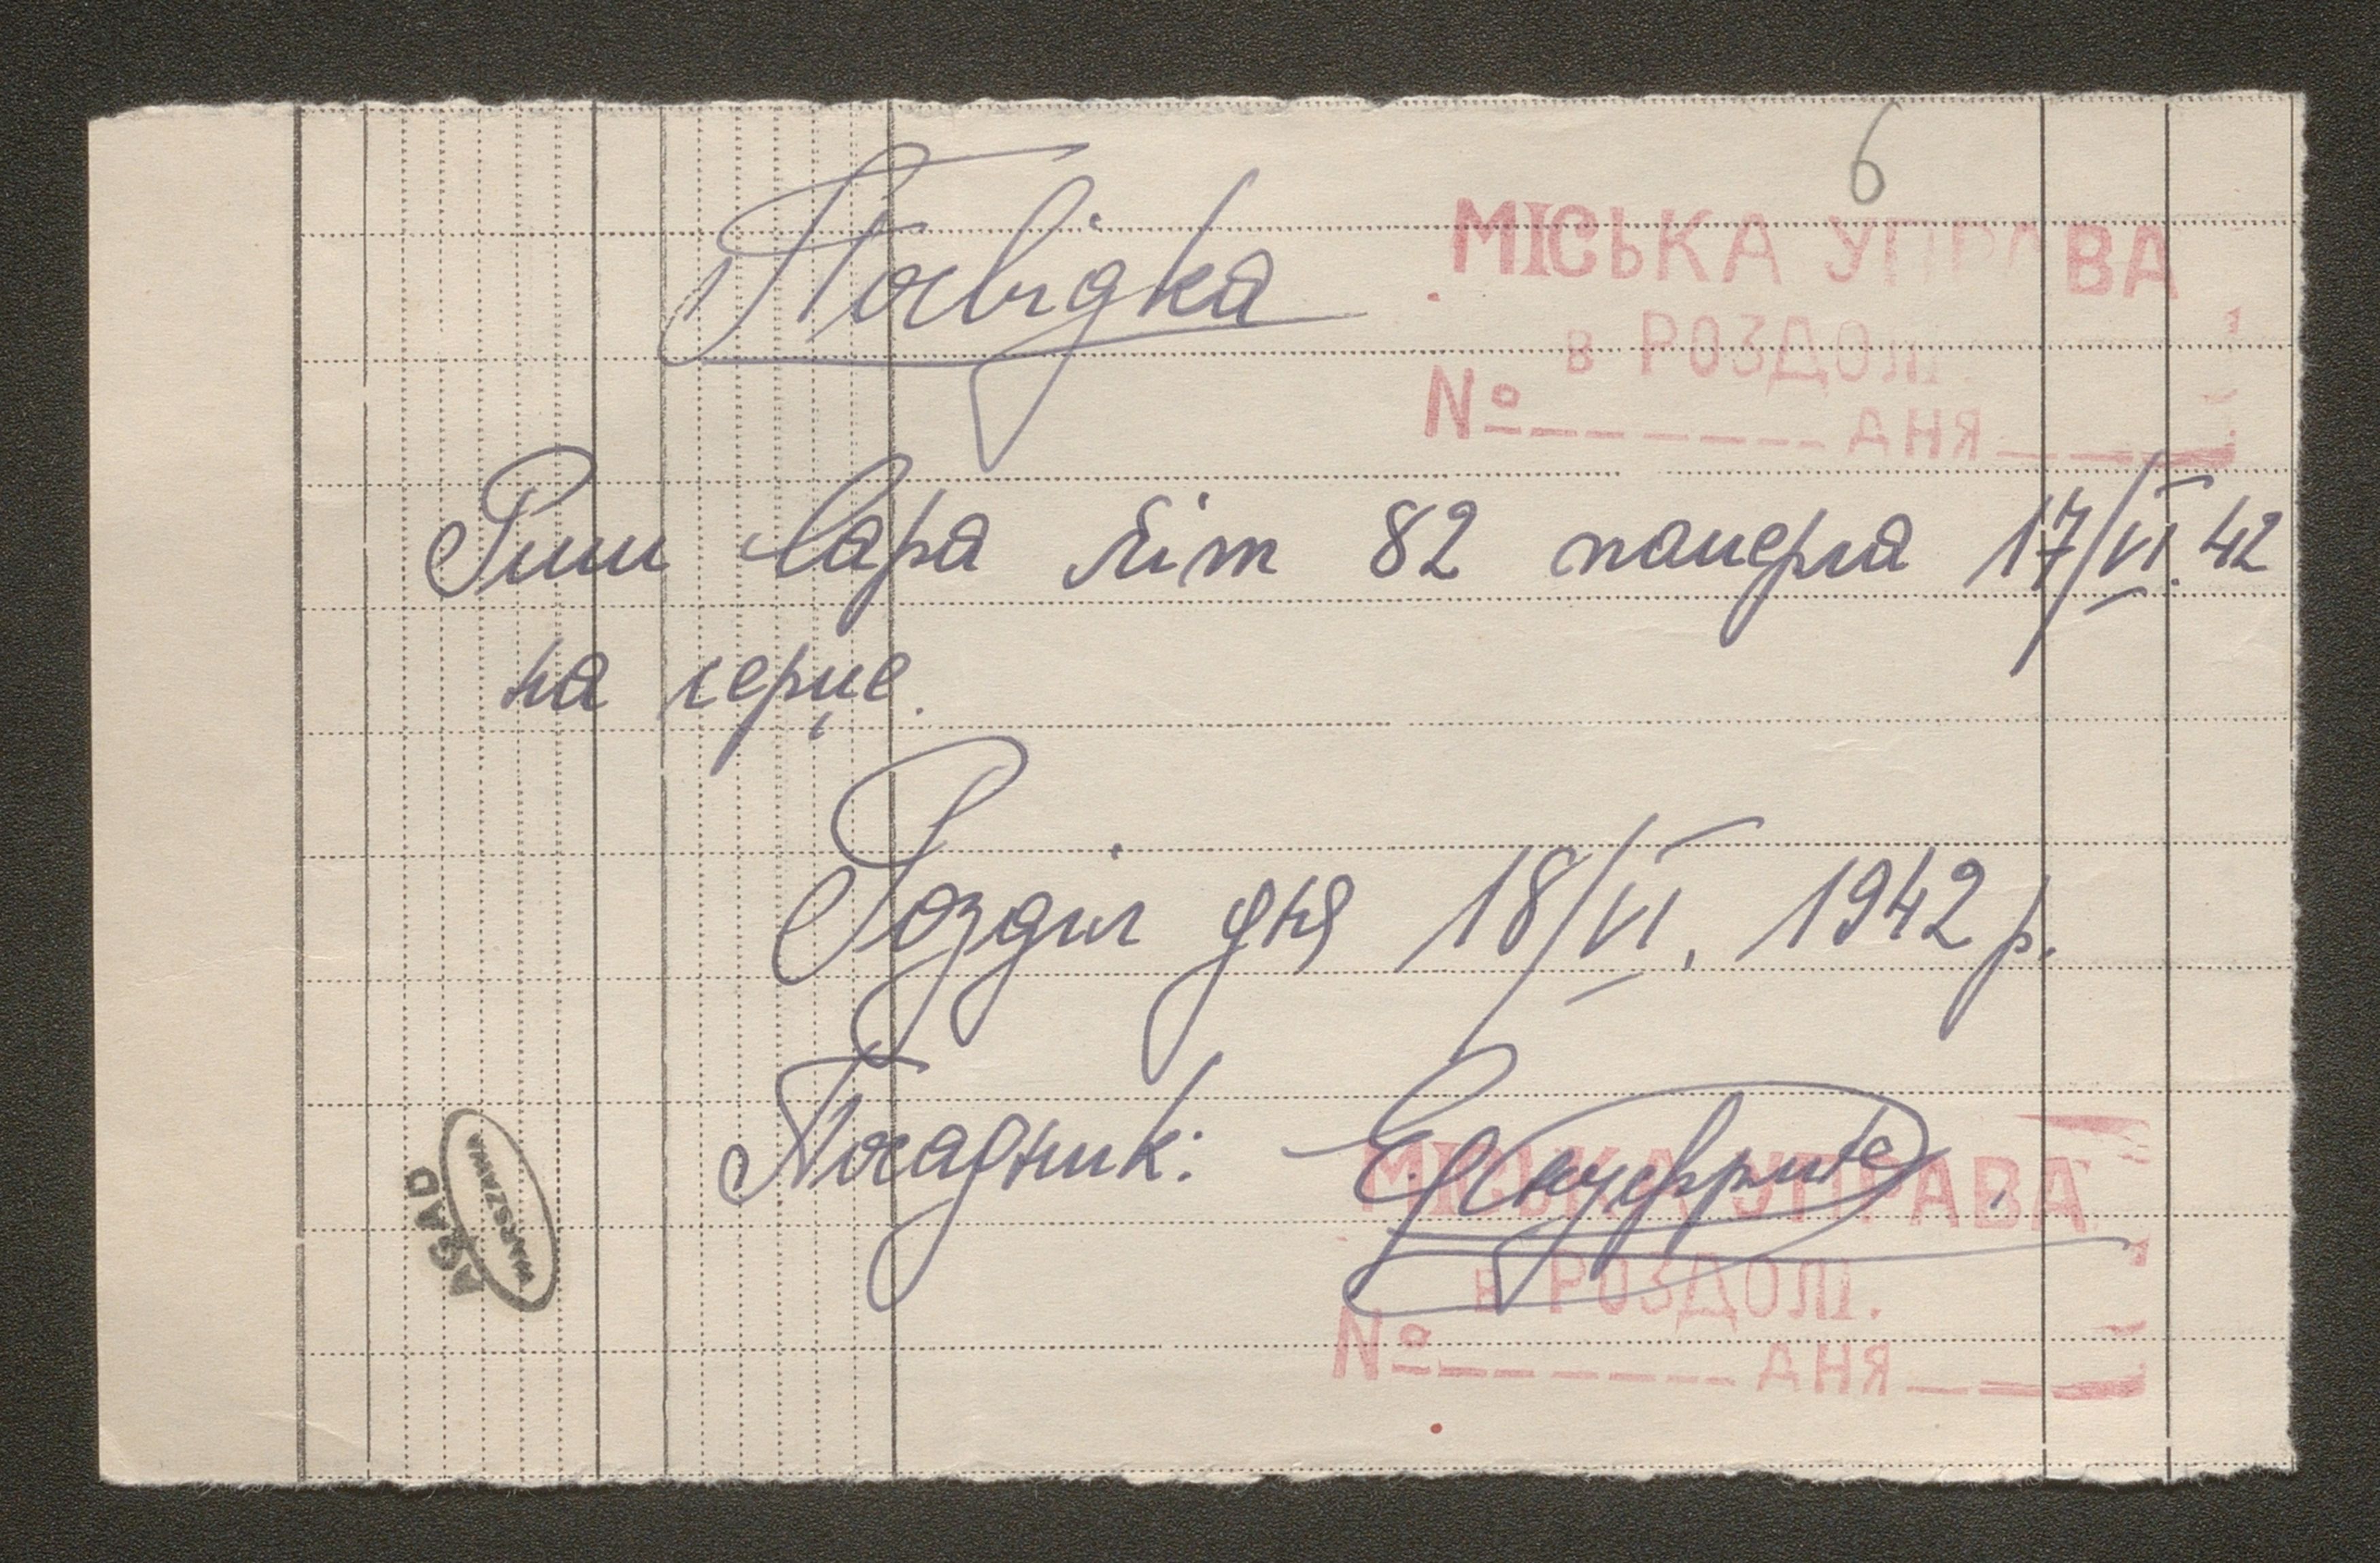 6
МІСЬКА УПРАВА
в РОЗДОЛІ.
№ ДНЯ
Посвідка
Сара літ 82 памерла 17/VI. 42
на серце.
Розділ дня 18/VI. 1942 р.
Посадник:
МІСЬКА УПРАВА
в РОЗДОЛІ.
№ ДНЯ
AGAD
WARSZAWA